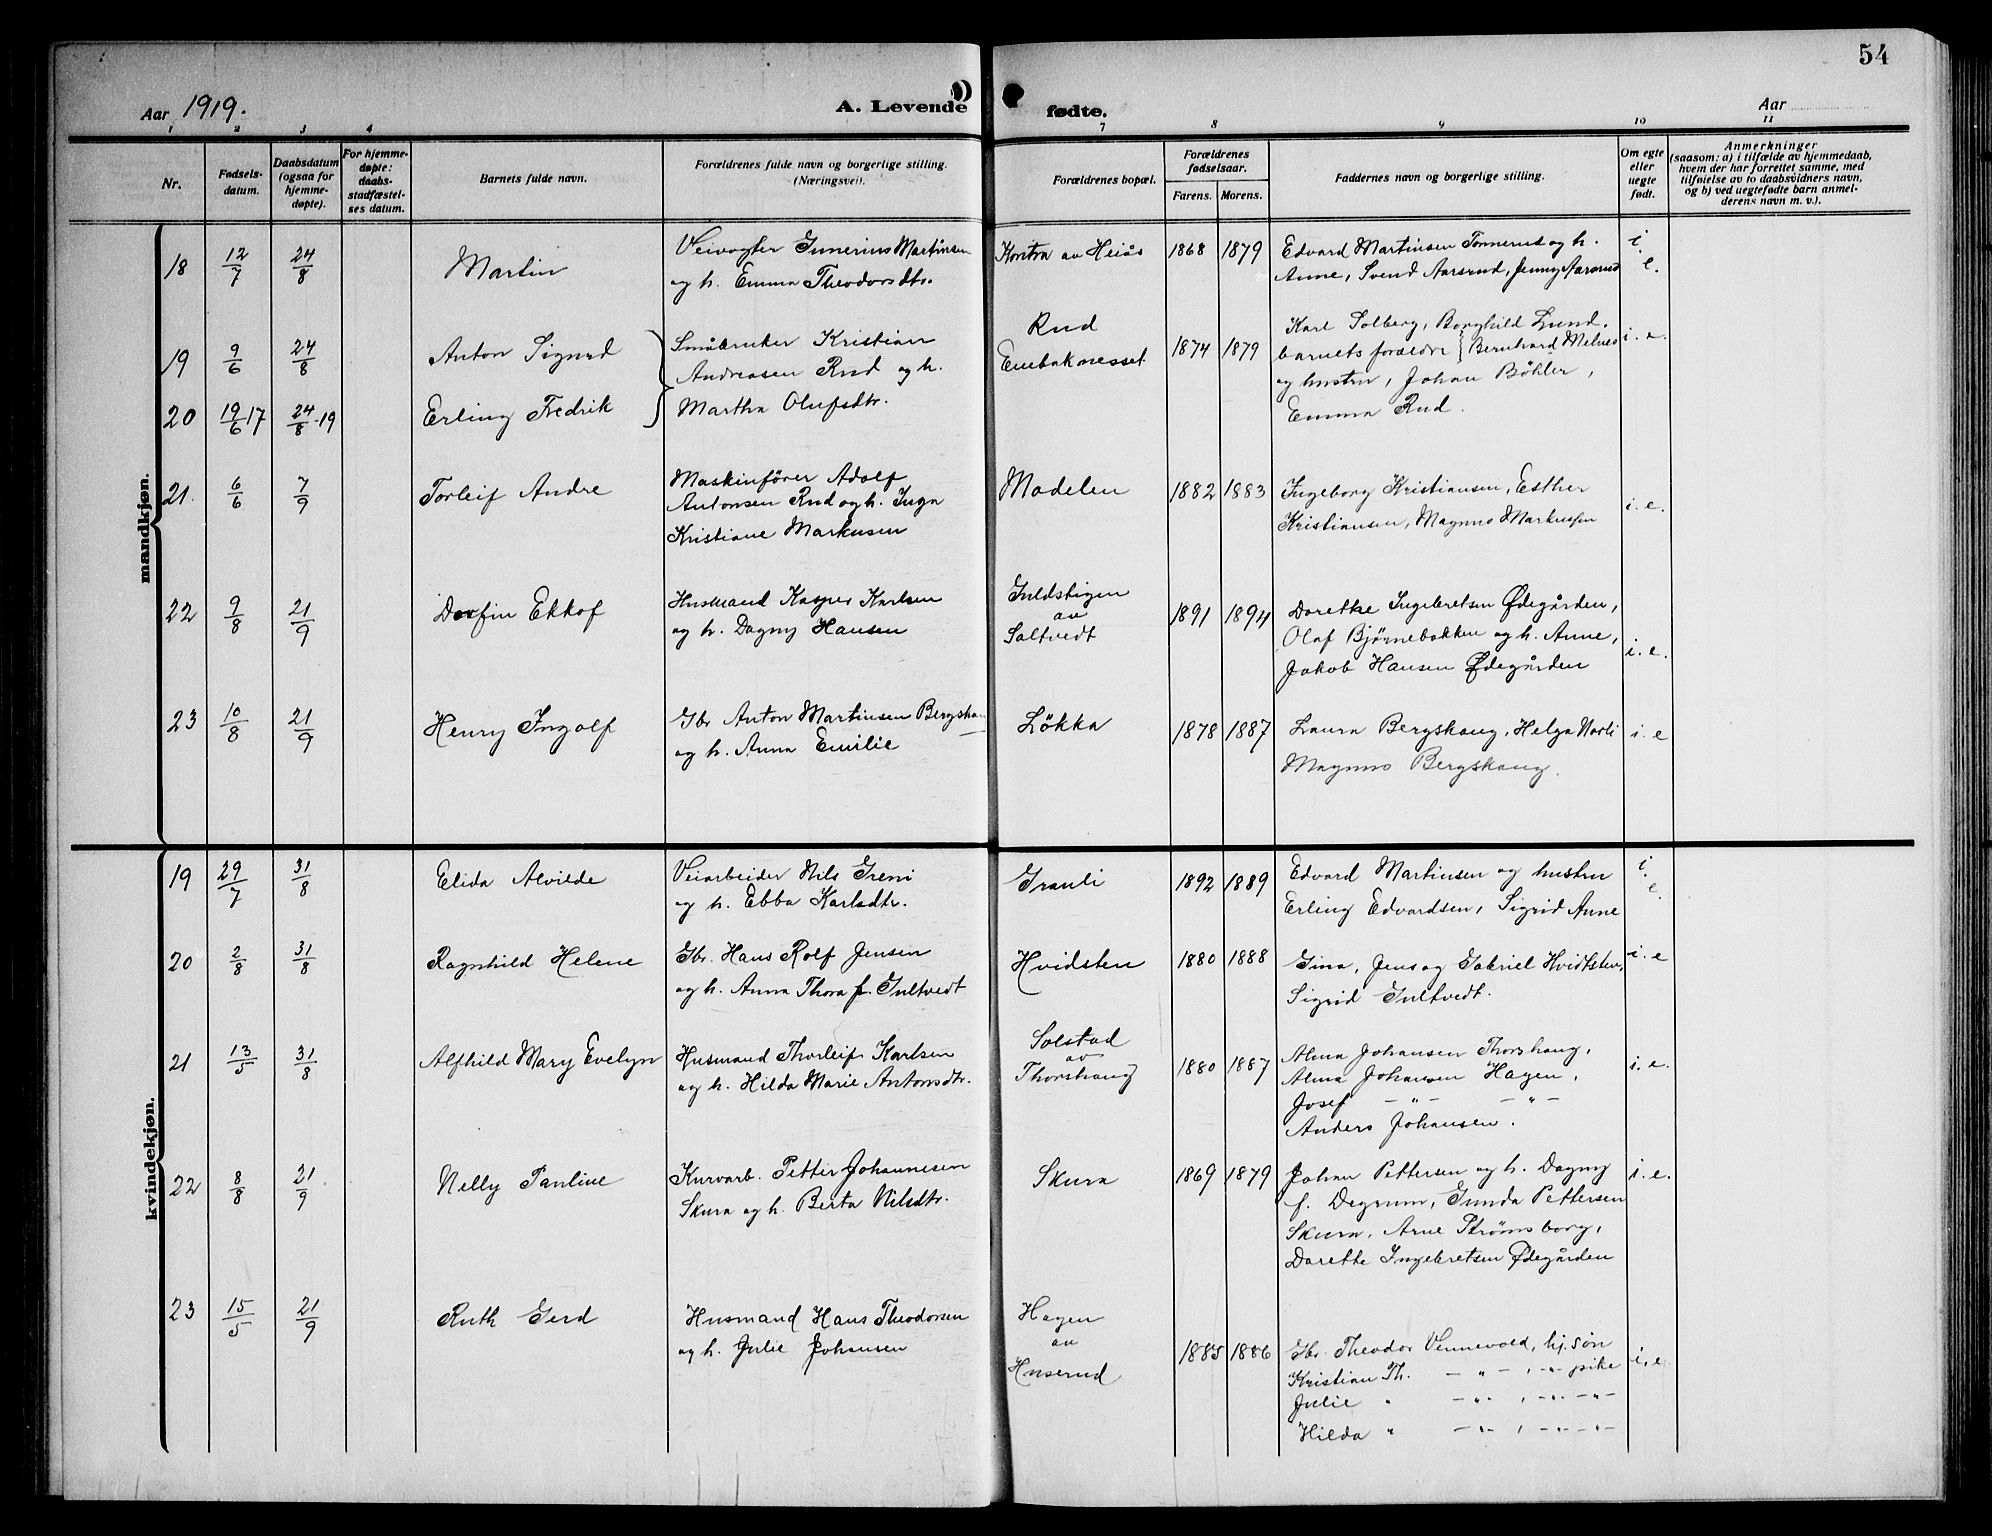 54
Aar 1919.
A. Levende fødte.
Aar
1 2 3 4 7 8 9 10 11
Nr.
Fødsels-
datum.
Daabsdatum
(ogsaa for
hjemme-
døpte).
For hjemme-
døpte:
daabs-
stadfæstel-
ses datum.
Barnets fulde navn.
Forældrenes fulde navn og borgerlige stilling.
(Næringsvei).
Forældrenes bopæl.
Forældrenes
fødselsaar.
Farens. Morens.
Faddernes navn og borgerlige stilling.
Om egte
eller
uegte
født.
Anmerkninger
(saasom: a) i tilfælde av hjemmedaab,
hvem der har forrettet samme, med
tilføielse av to daabsvidners navn,
og b) ved uegtefødte barn anmel-
derens navn m. v.).
mandkjøn.
18 12/7 24/8 Martin
Veivogter Gunerius Martinsen
og h. Emma Theodorsdtr.
Kortra av Heiås 1868 1879
Edvard Martinsen Tonnerud og h.
Anne, Svend Aarsrud, Jenny Aarsrud
i. e.
19 9/6 24/8 Anton Sigurd
20 19/6 17 24/8 19 Erling Fredrik
Småbruker Kristian
Andreasen Rud og h.
Martha Olufsdtr.
Rud
Enebaknesset 1874 1879
Karl Solberg, Borghild Lund,
barnets forældre Bernhard Melnes
og hustru, Johan Böhler,
Emma Rud.
i. e.
21. 6/6 7/9 Torleif Andre
Maskinförer Adolf
Antonsen Rud og h. Inga
Kristiane Markusen
Modelen 1882 1883
Ingeborg Kristiansen, Esther
Kristiansen, Magnus Markussen
i. e.
22 9/8 21/9 Dorfin Ekkof
Husmand Kasper Karlsen
og h. Dagny Hansen
Guldstigen
av
Saltvedt 1891 1894
Dorethe Ingebretsen Ødegården,
Olaf Bjørnebakken og h. Anne,
Jakob Hansen Ødegården
i. e.
23 10/8 21/9 Henry Ingolf
Gbr Anton Martinsen Bergshau
og h. Anna Emilie
Løkka 1878 1887
Laura Bergshaug, Helga Norli
Magnus Bergshaug.
i. e
kvindekjøn.
19 29/7 31/8 Elida Alvilde
Veiarbeider Nils Greni
og h. Ebba Karlsdtr.
Granli 1892 1889
Edvard Martinsen og hustru
Erling Edvardsen, Sigrid Anne
i. e.
20 2/8 31/8 Ragnhild Helene
Gbr. Hans Rolf Jensen
og h. Anna Thora f. Gultvedt
Hvidsten 1880 1888
Gina, Jens og Gabriel Hvidtsten,
Sigrid Gultvedt.
i. e
21 13/5 31/8 Alfhild Mary Evelyn
Husmand Thorleif Karlsen
og h. Hilda Marie Antonsdtr.
Solstad
av
Thorshaug 1880 1887
Alma Johansen Thorshaug,
Alma Johansen Hagen,
Josef — " — — " —
Anders Johansen.
i. e.
22 8/8 21/9 Nelly Pauline
Kurvarb. Petter Johannesen
Skura og h. Berta Nilsdtr.
Skura 1869 1879
Johan Pettersen og h. Dagny
f. Degrum, Gunda Pettersen
Skura, Arne Strømsborg,
Dorethe Ingebretsen Ødegården
i. e.
23 15/5 21/9 Ruth Gerd
Husmand Hans Theodorsen
og h. Julie Johansen
Hagen
av
Huserud 1885 1886
Gbr. Theodor Vennevold, hj. søn
Kristian Th. — " — , — " — pike
Julie " — " — , — " — — " —
Hilda " — " — , — " — — " —
i. e.